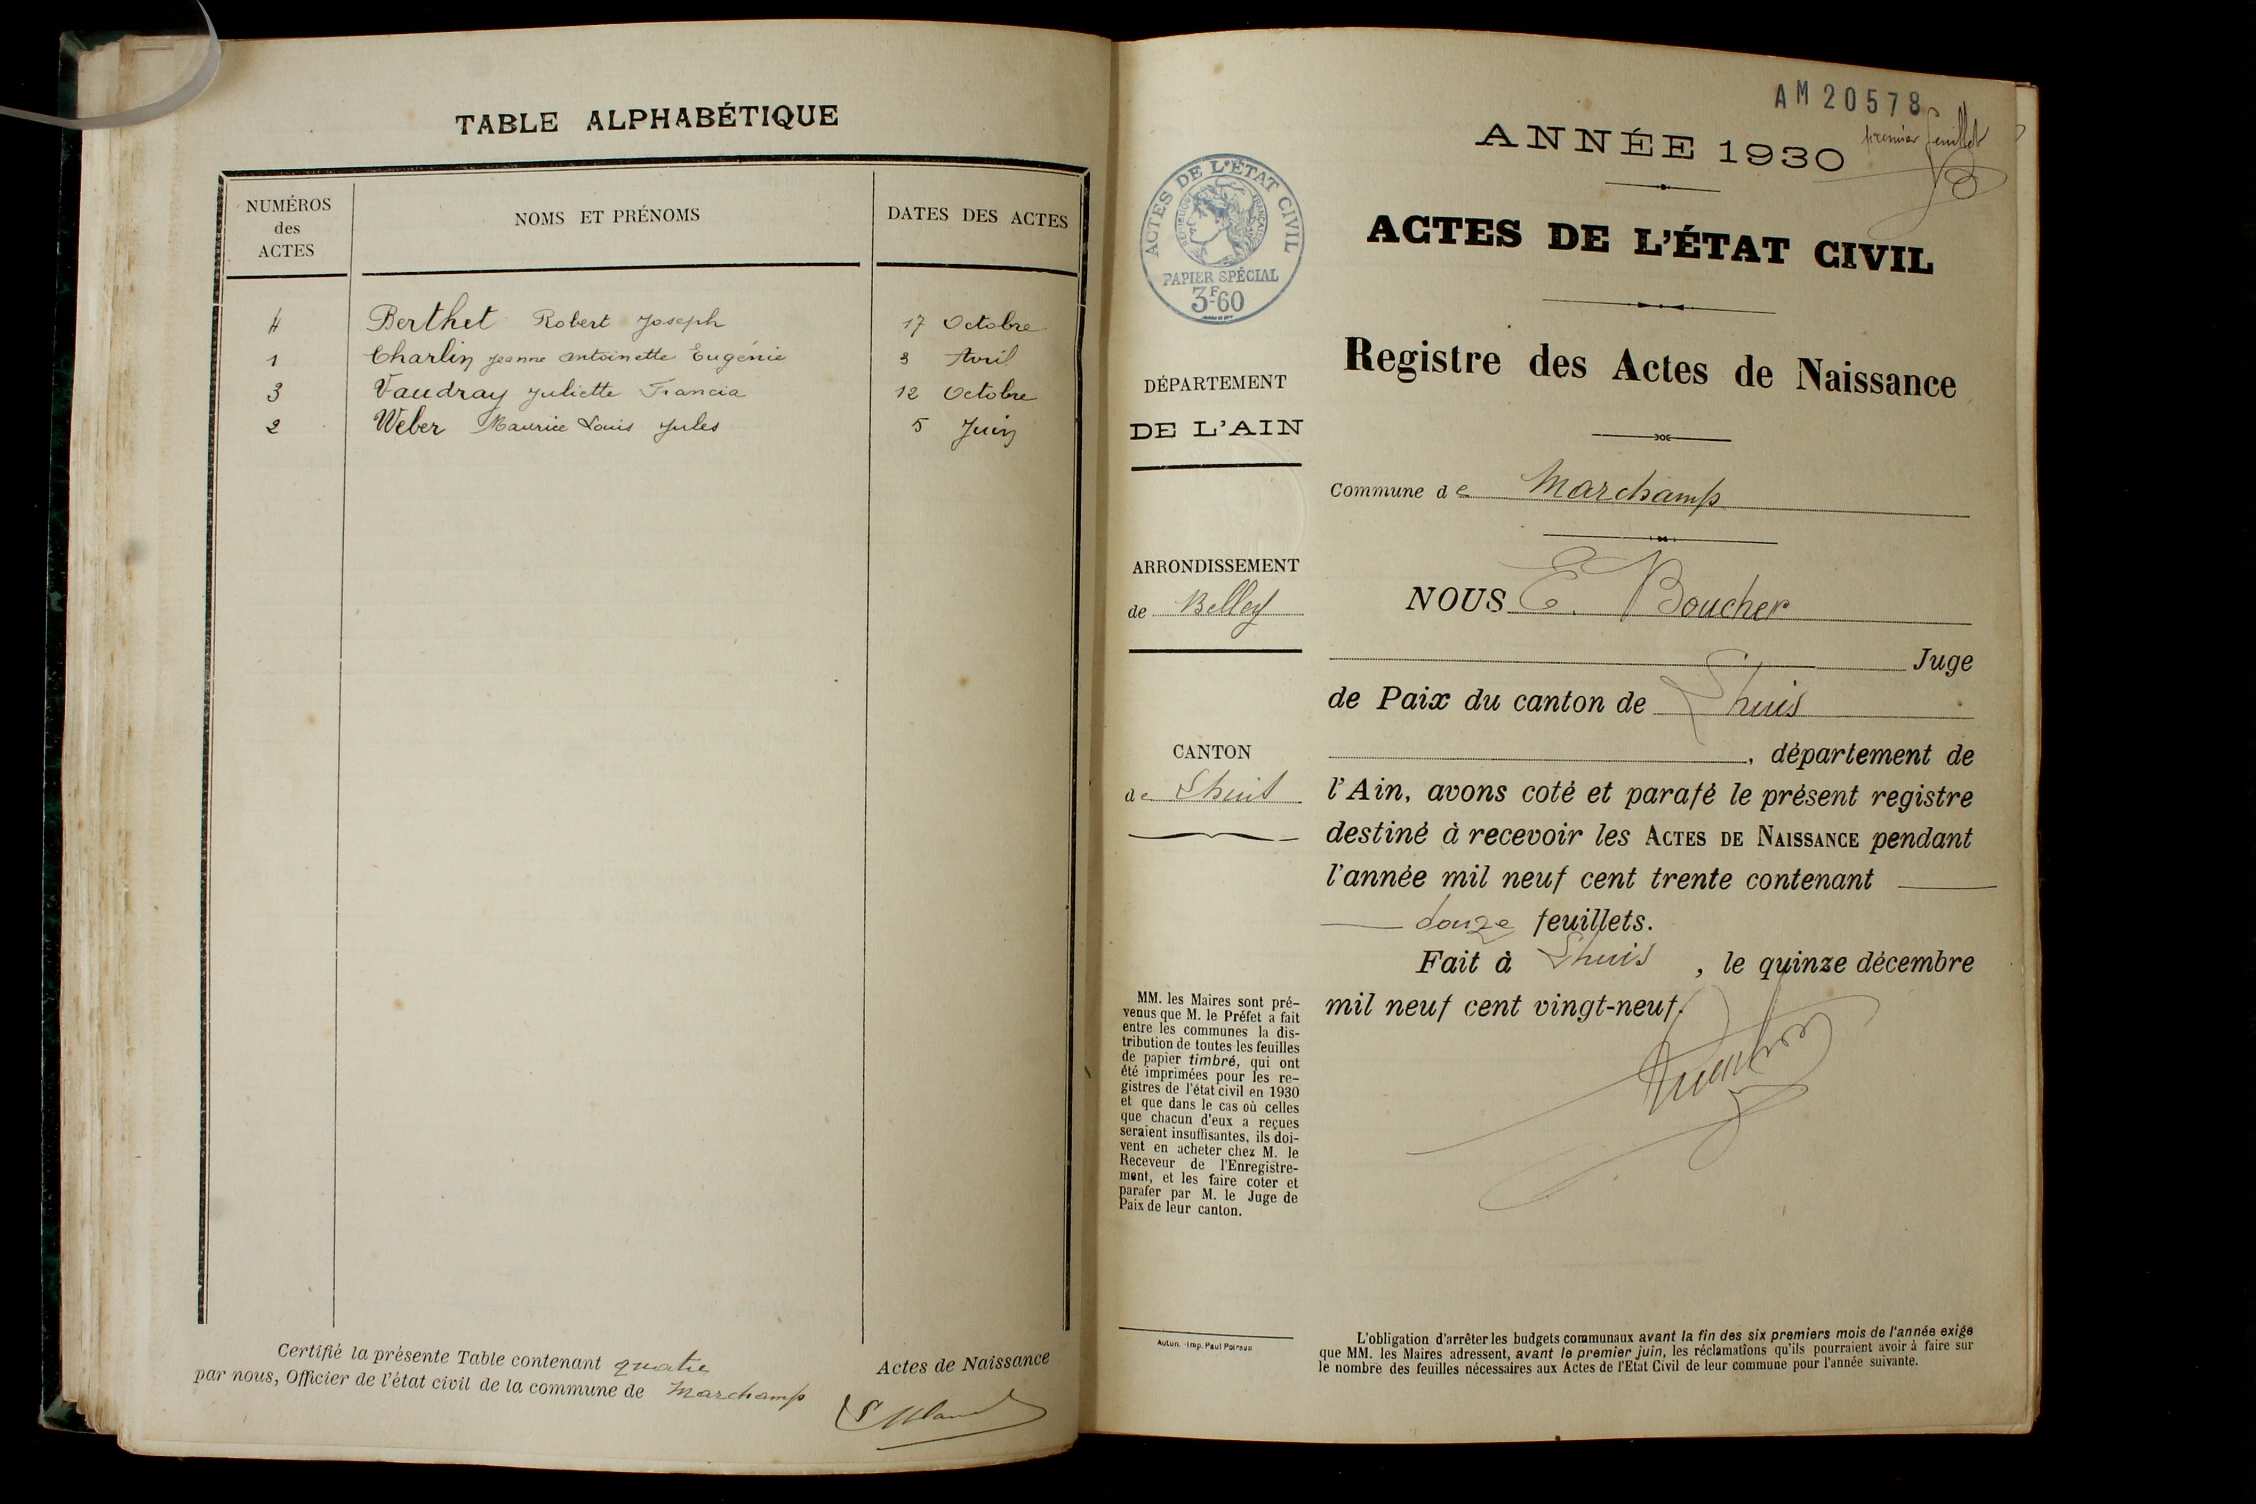 TABLE ALPHABÉTIQUE
NUMÉROS
des
ACTES
NOMS ET PRÉNOMS
DATES DES ACTES
4 Berthet Robert Joseph 17 Octobre
1 Charlin Jeanne Antoinette Eugénie 3 Avril
3 Vaudray Juliette Francia 12 Octobre
2 Weber Maurice Louis Jules 5 Juin
Certifié la présente Table contenant quatre Actes de Naissance
par nous, Officier de l'état civil de la commune de Marchamp
AM 20578
premier feuillet
ANNÉE 1930
ACTES DE L'ÉTAT CIVIL
RÉPUBLIQUE FRANÇAISE
PAPIER SPÉCIAL
3F60
ACTES DE L'ÉTAT CIVIL
Registre des Actes de Naissance
DÉPARTEMENT
DE L'AIN
Commune de Marchamp
ARRONDISSEMENT
de Belley
CANTON
de Lhuis
NOUS E. Boucher
Juge
de Paix du canton de Lhuis
, département de
l'Ain, avons coté et parafé le présent registre
destiné à recevoir les ACTES DE NAISSANCE pendant
l'année mil neuf cent trente contenant
douze feuillets.
Fait à Lhuis, le quinze décembre
mil neuf cent vingt-neuf.
MM. les Maires sont pré-
venus que M. le Préfet a fait
entre les communes la dis-
tribution de toutes les feuilles
de papier timbré, qui ont
été imprimées pour les re-
gistres de l'état civil en 1930
et que dans le cas où celles
que chacun d'eux a reçues
seraient insuffisantes, ils doi-
vent en acheter chez M. le
Receveur de l'Enregistre-
ment, et les faire coter et
parafer par M. le Juge de
Paix de leur canton.
Autun. - Imp. Paul Poirson
L'obligation d'arrêter les budgets communaux avant la fin des six premiers mois de l'année exige
que MM. les Maires adressent, avant le premier juin, les réclamations qu'ils pourraient avoir à faire sur
le nombre des feuilles nécessaires aux Actes de l'Etat Civil de leur commune pour l'année suivante.